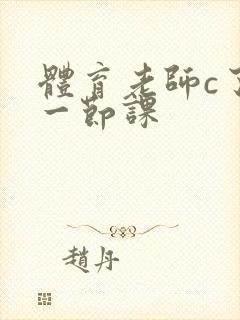 體育老師c了
一節課
趙丹